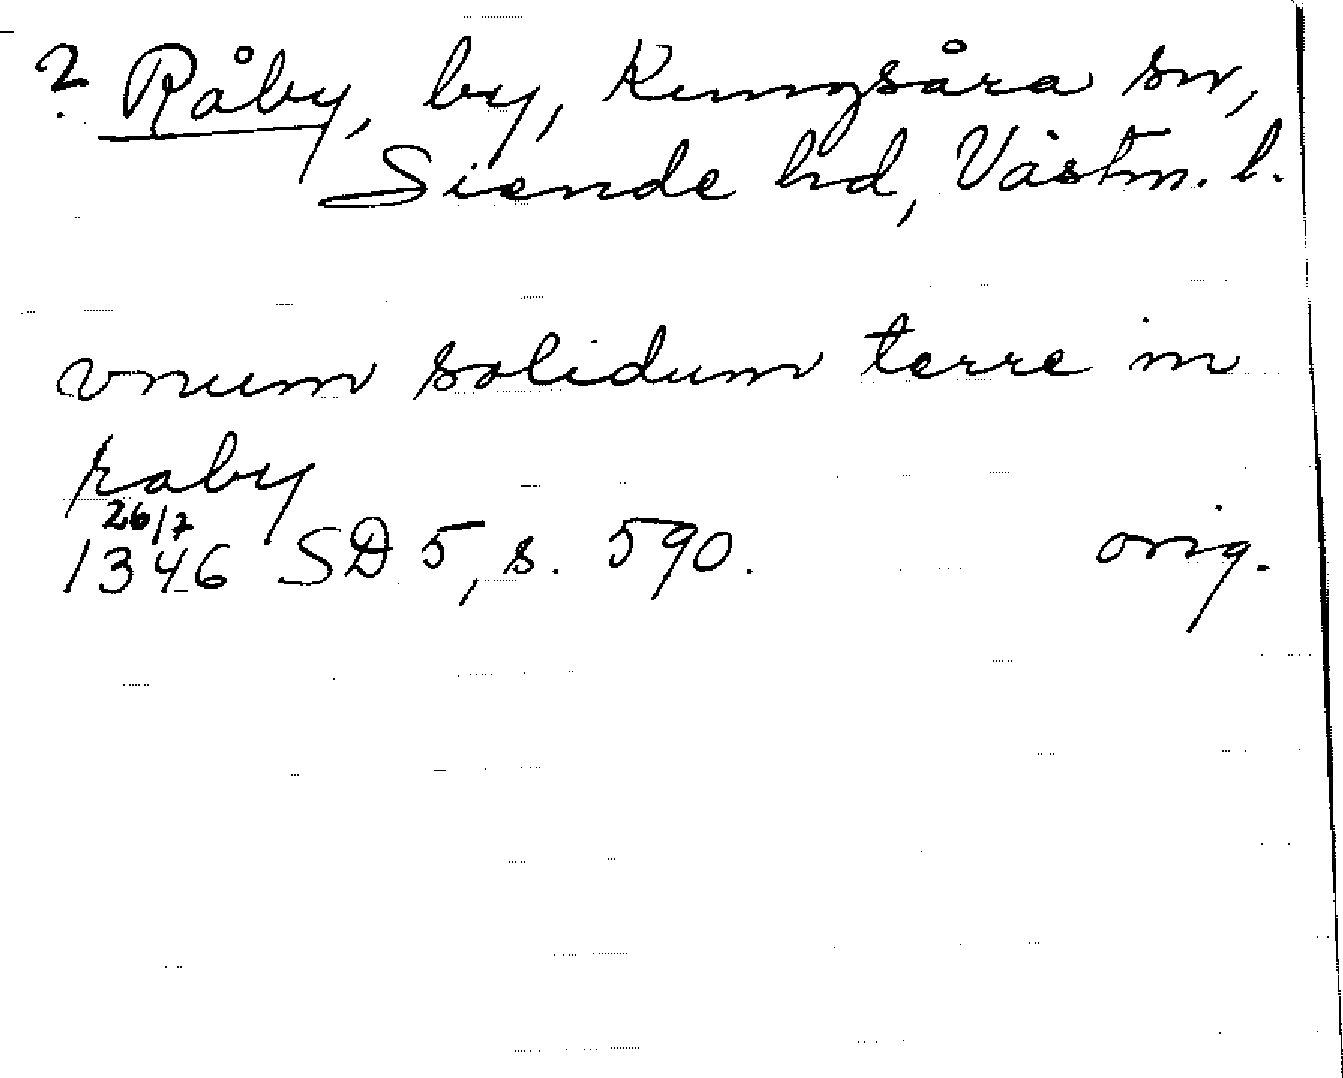 ? Råby, by, Kungsåra sn,
Siende hd, Västm. l.
vnum solidum terre in
raby
26/7
1346 SD 5, s. 590. orig.